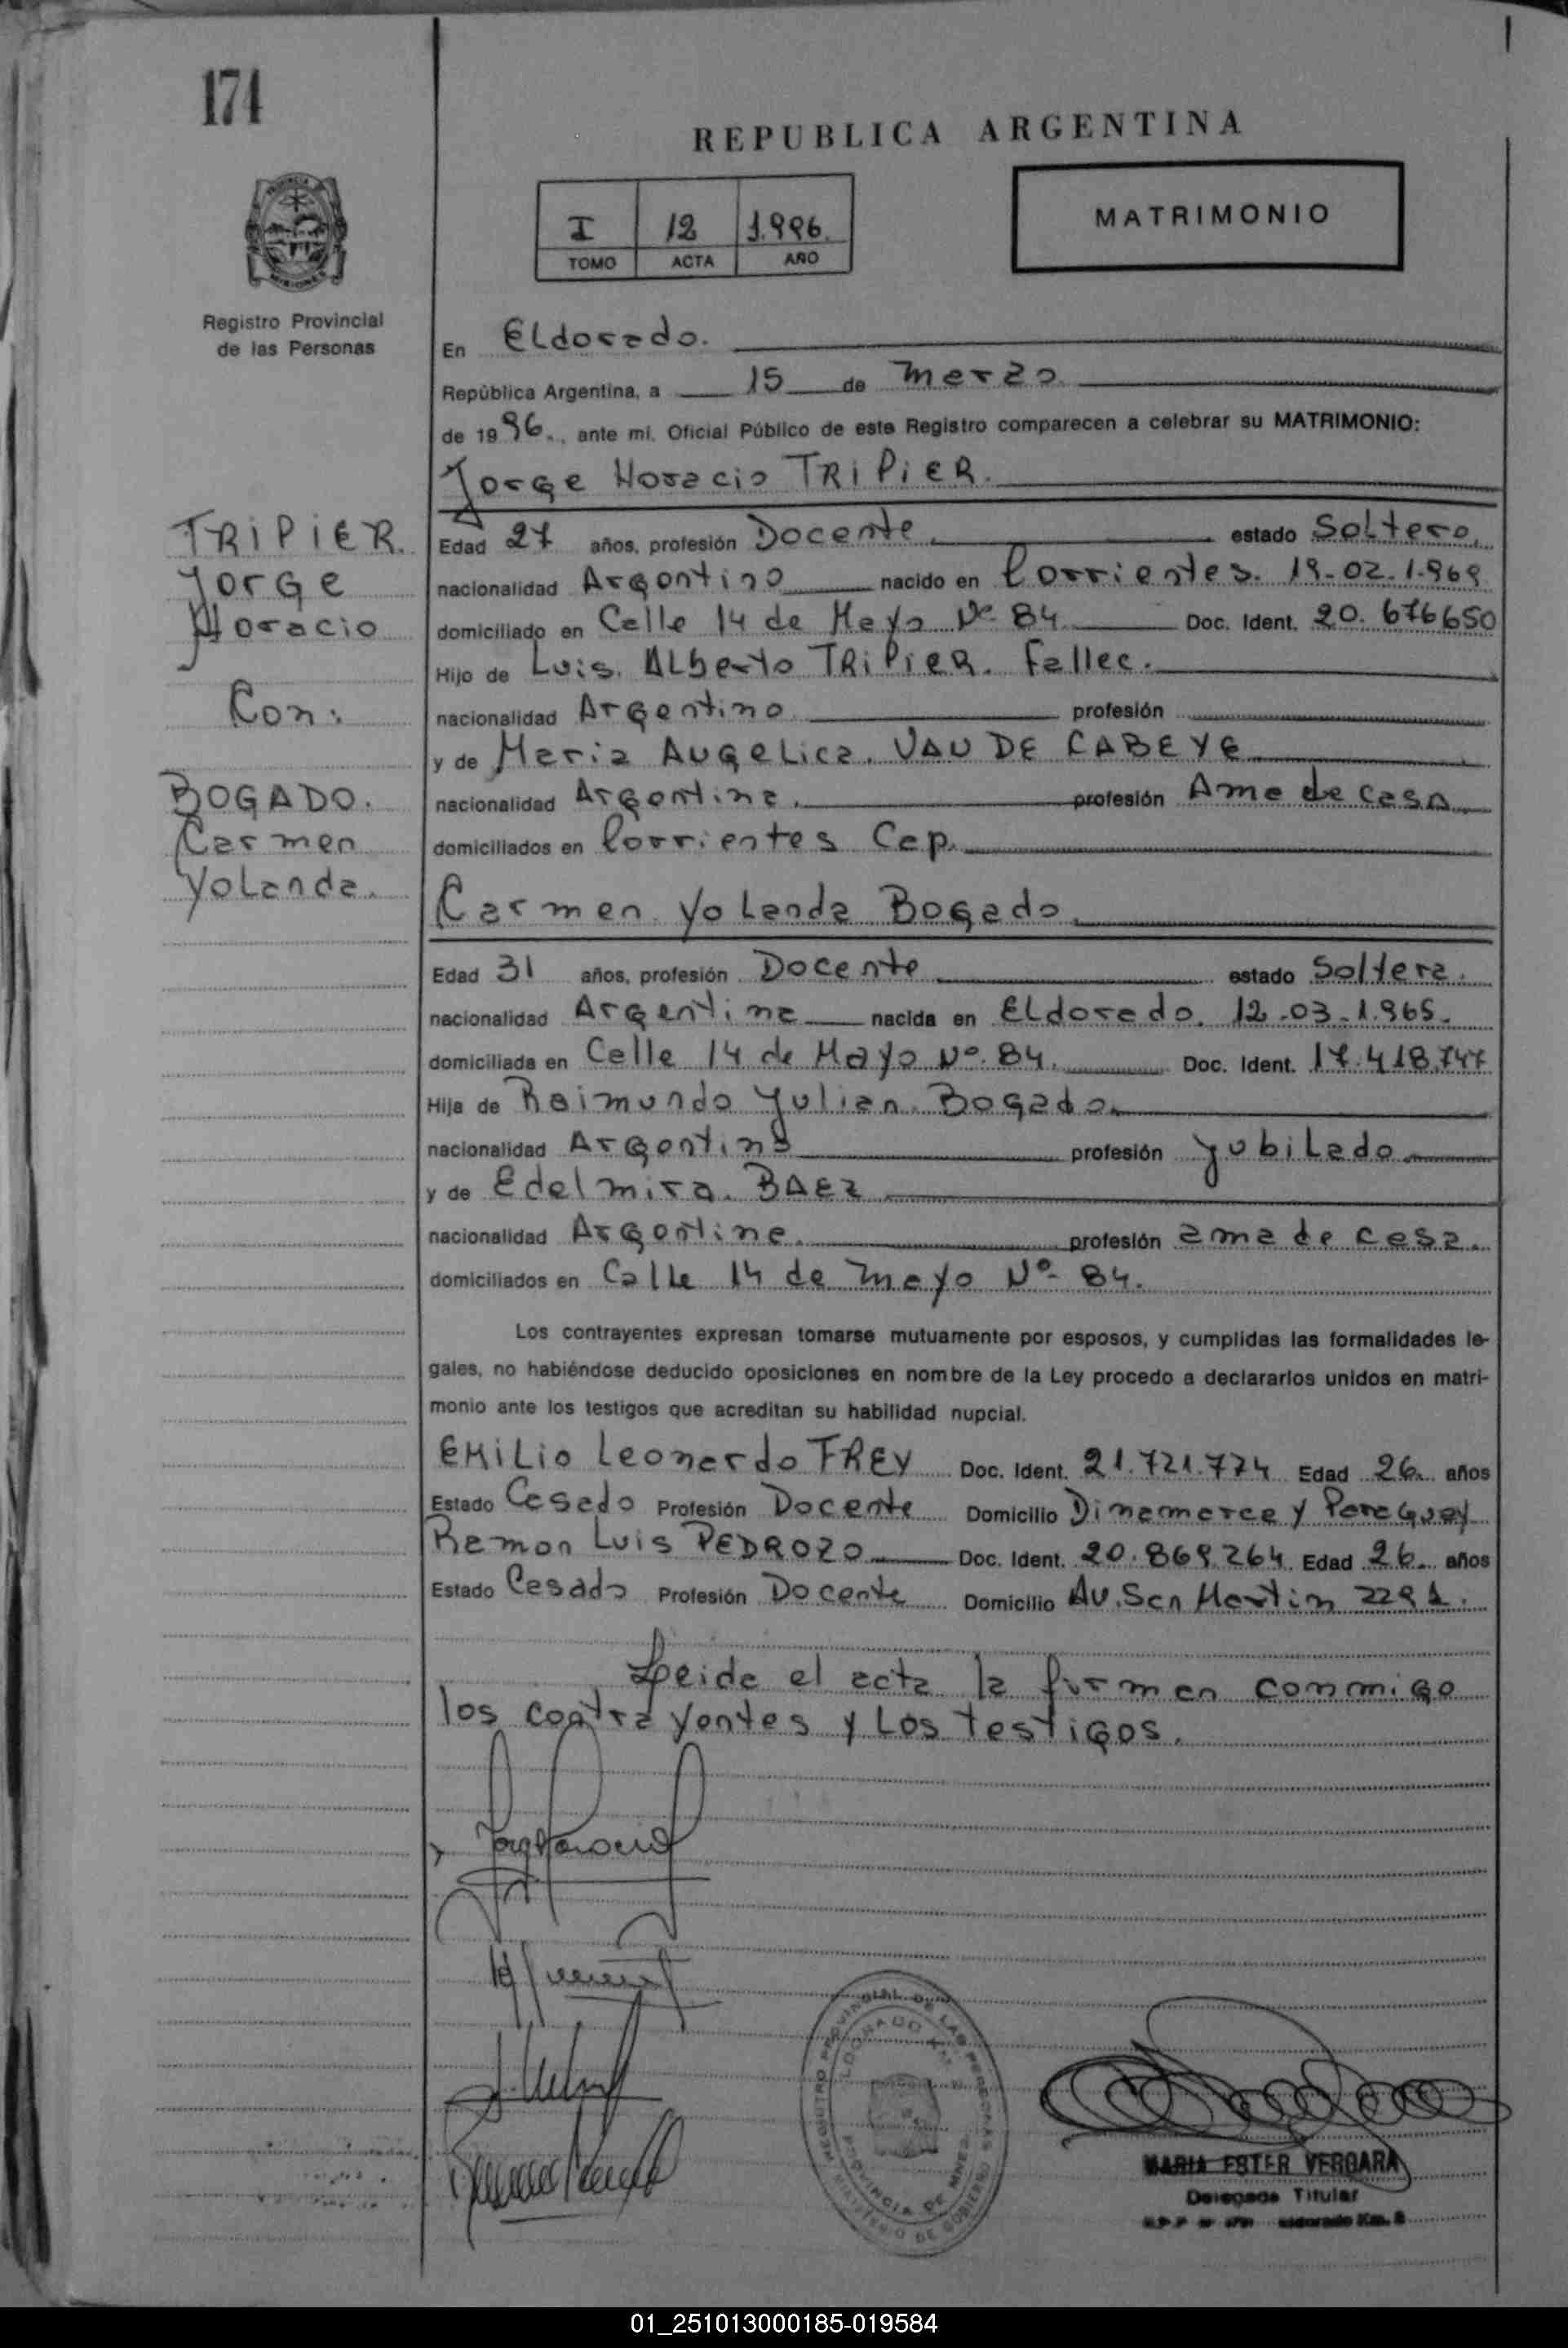 174
REPUBLICA ARGENTINA
I 12 1.996.
TOMO ACTA AÑO
MATRIMONIO
Registro Provincial
de las Personas
En Eldorado.
República Argentina, a 15 de Marzo.
de 1996., ante mí, Oficial Público de este Registro comparecen a celebrar su MATRIMONIO:
Jorge Horacio TRIPIER.
TRIPIER.
Jorge
Horacio
Con:
BOGADO.
Carmen
Yolanda.
Edad 27 años, profesión Docente. estado Soltero.
nacionalidad Argentino nacido en Corrientes. 19-02.1.969
domiciliado en Calle 14 de Mayo Nº 84. Doc. Ident. 20.676650
Hijo de Luis. Alberto TRIPIER. Fallec.
nacionalidad Argentino. profesión
y de Maria Angelica. VAN DE CABEYE
nacionalidad Argentina. profesión Ama de casa
domiciliados en Corrientes Cap.
Carmen Yolanda Bogado.
Edad 31 años, profesión Docente estado Soltera.
nacionalidad Argentina nacida en Eldorado. 12-03-1.965.
domiciliada en Calle 14 de Mayo Nº 84. Doc. Ident. 17.418.747
Hija de Raimundo Julian. Bogado.
nacionalidad Argentino profesión Jubilado
y de Edelmira. BAEZ
nacionalidad Argentina. profesión ama de casa.
domiciliados en Calle 14 de Mayo Nº 84.
Los contrayentes expresan tomarse mutuamente por esposos, y cumplidas las formalidades le-
gales, no habiéndose deducido oposiciones en nombre de la Ley procedo a declararlos unidos en matri-
monio ante los testigos que acreditan su habilidad nupcial.
Emilio Leonardo FREY Doc. Ident. 21.721.774 Edad 26. años
Estado Casado Profesión Docente Domicilio Dinamarca y Paraguay
Ramon Luis PEDROZO Doc. Ident. 20.869.264. Edad 26. años
Estado Casado Profesión Docente Domicilio Av. San Martin 2291.
Leida el acta la firman conmigo
los contrayentes y los testigos.
REGISTRO PROVINCIAL DE LAS PERSONAS
PROVINCIA DE MNES.
MINISTERIO DE GOBIERNO
MARIA ESTER VERGARA
Delegada Titular
Eldorado Km.
01_251013000185-019584